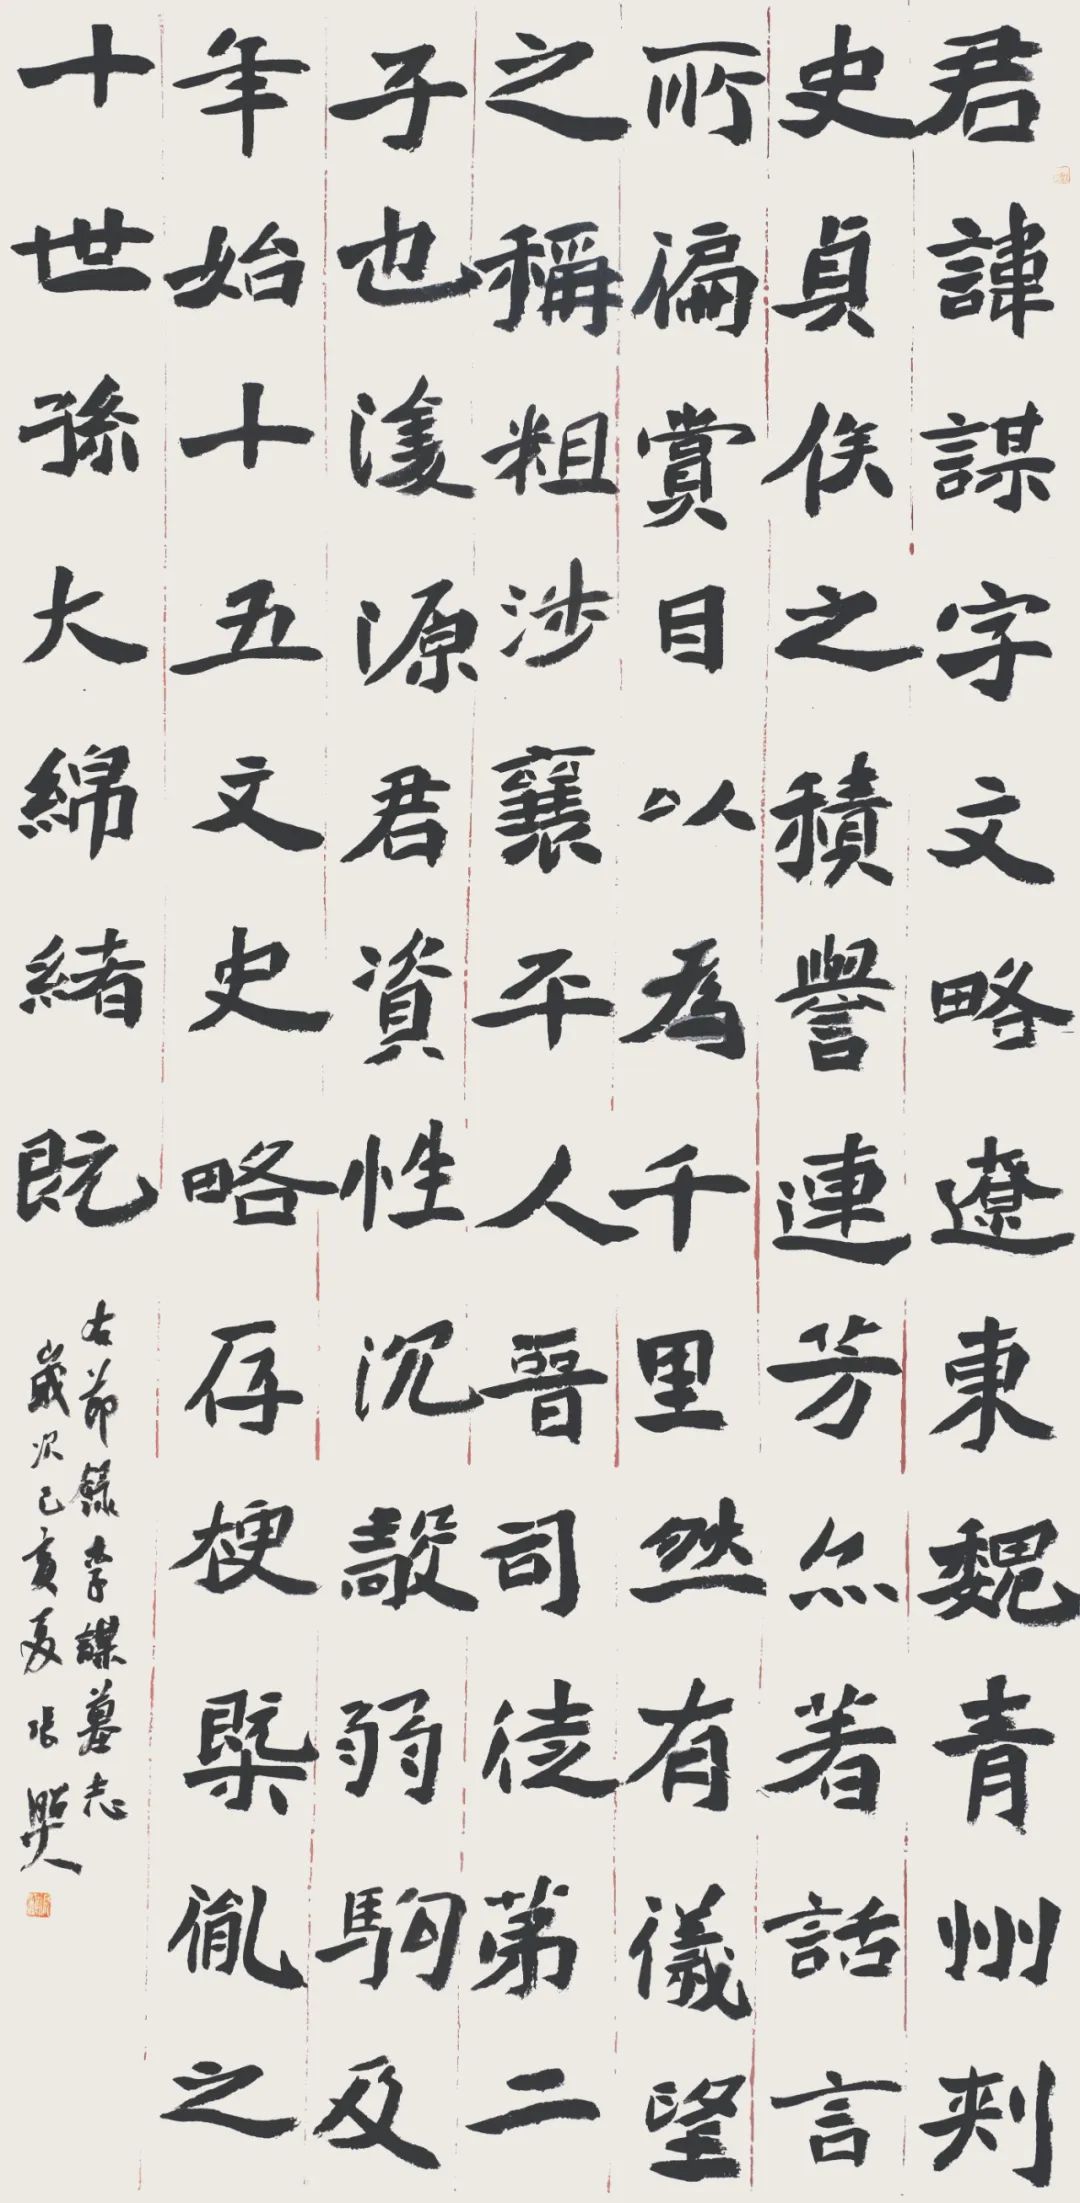 君諱謀字文略遼東魏青州刺
史貞侯之積譽連芳尒著話言
所徧賞目以為千里然有儀望
之稱粗涉襄平人晉司徒第二
子也濬源君資性沉毅弱駒及
年始十五文史略存梗槩胤之
十世孫大綿緒既
右節錄李謀墓志
歲次己亥夏張